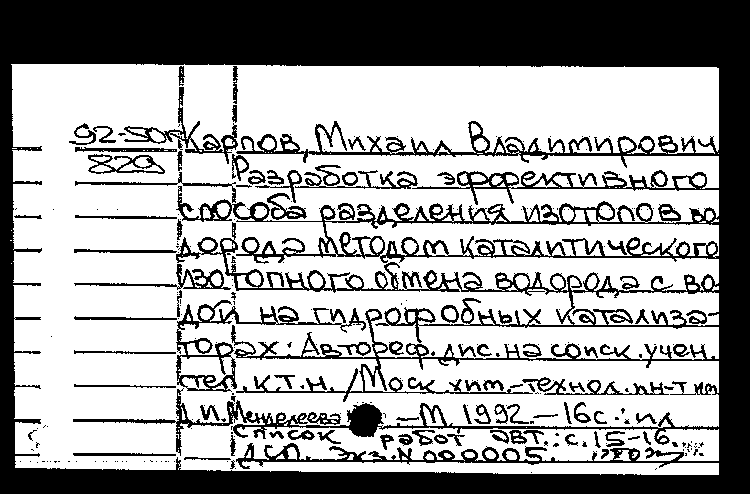 92-50п Карпов, Михаил Владимирович
829 Разработка эффективного
способа разделения изотопов во
дорода методом каталитического
изотопного обмена водорода с во
дой на гидрофобных катализа-
торах: Автореф. дис. на соиск. учен.
степ. к.т.н. /Моск хим.-технол. ин-т им
Д.И. Менделеева .-М. 1992.-16с.:ил
Список работ авт.: с.15-16.
Д.С.П. Экз.N 000005.